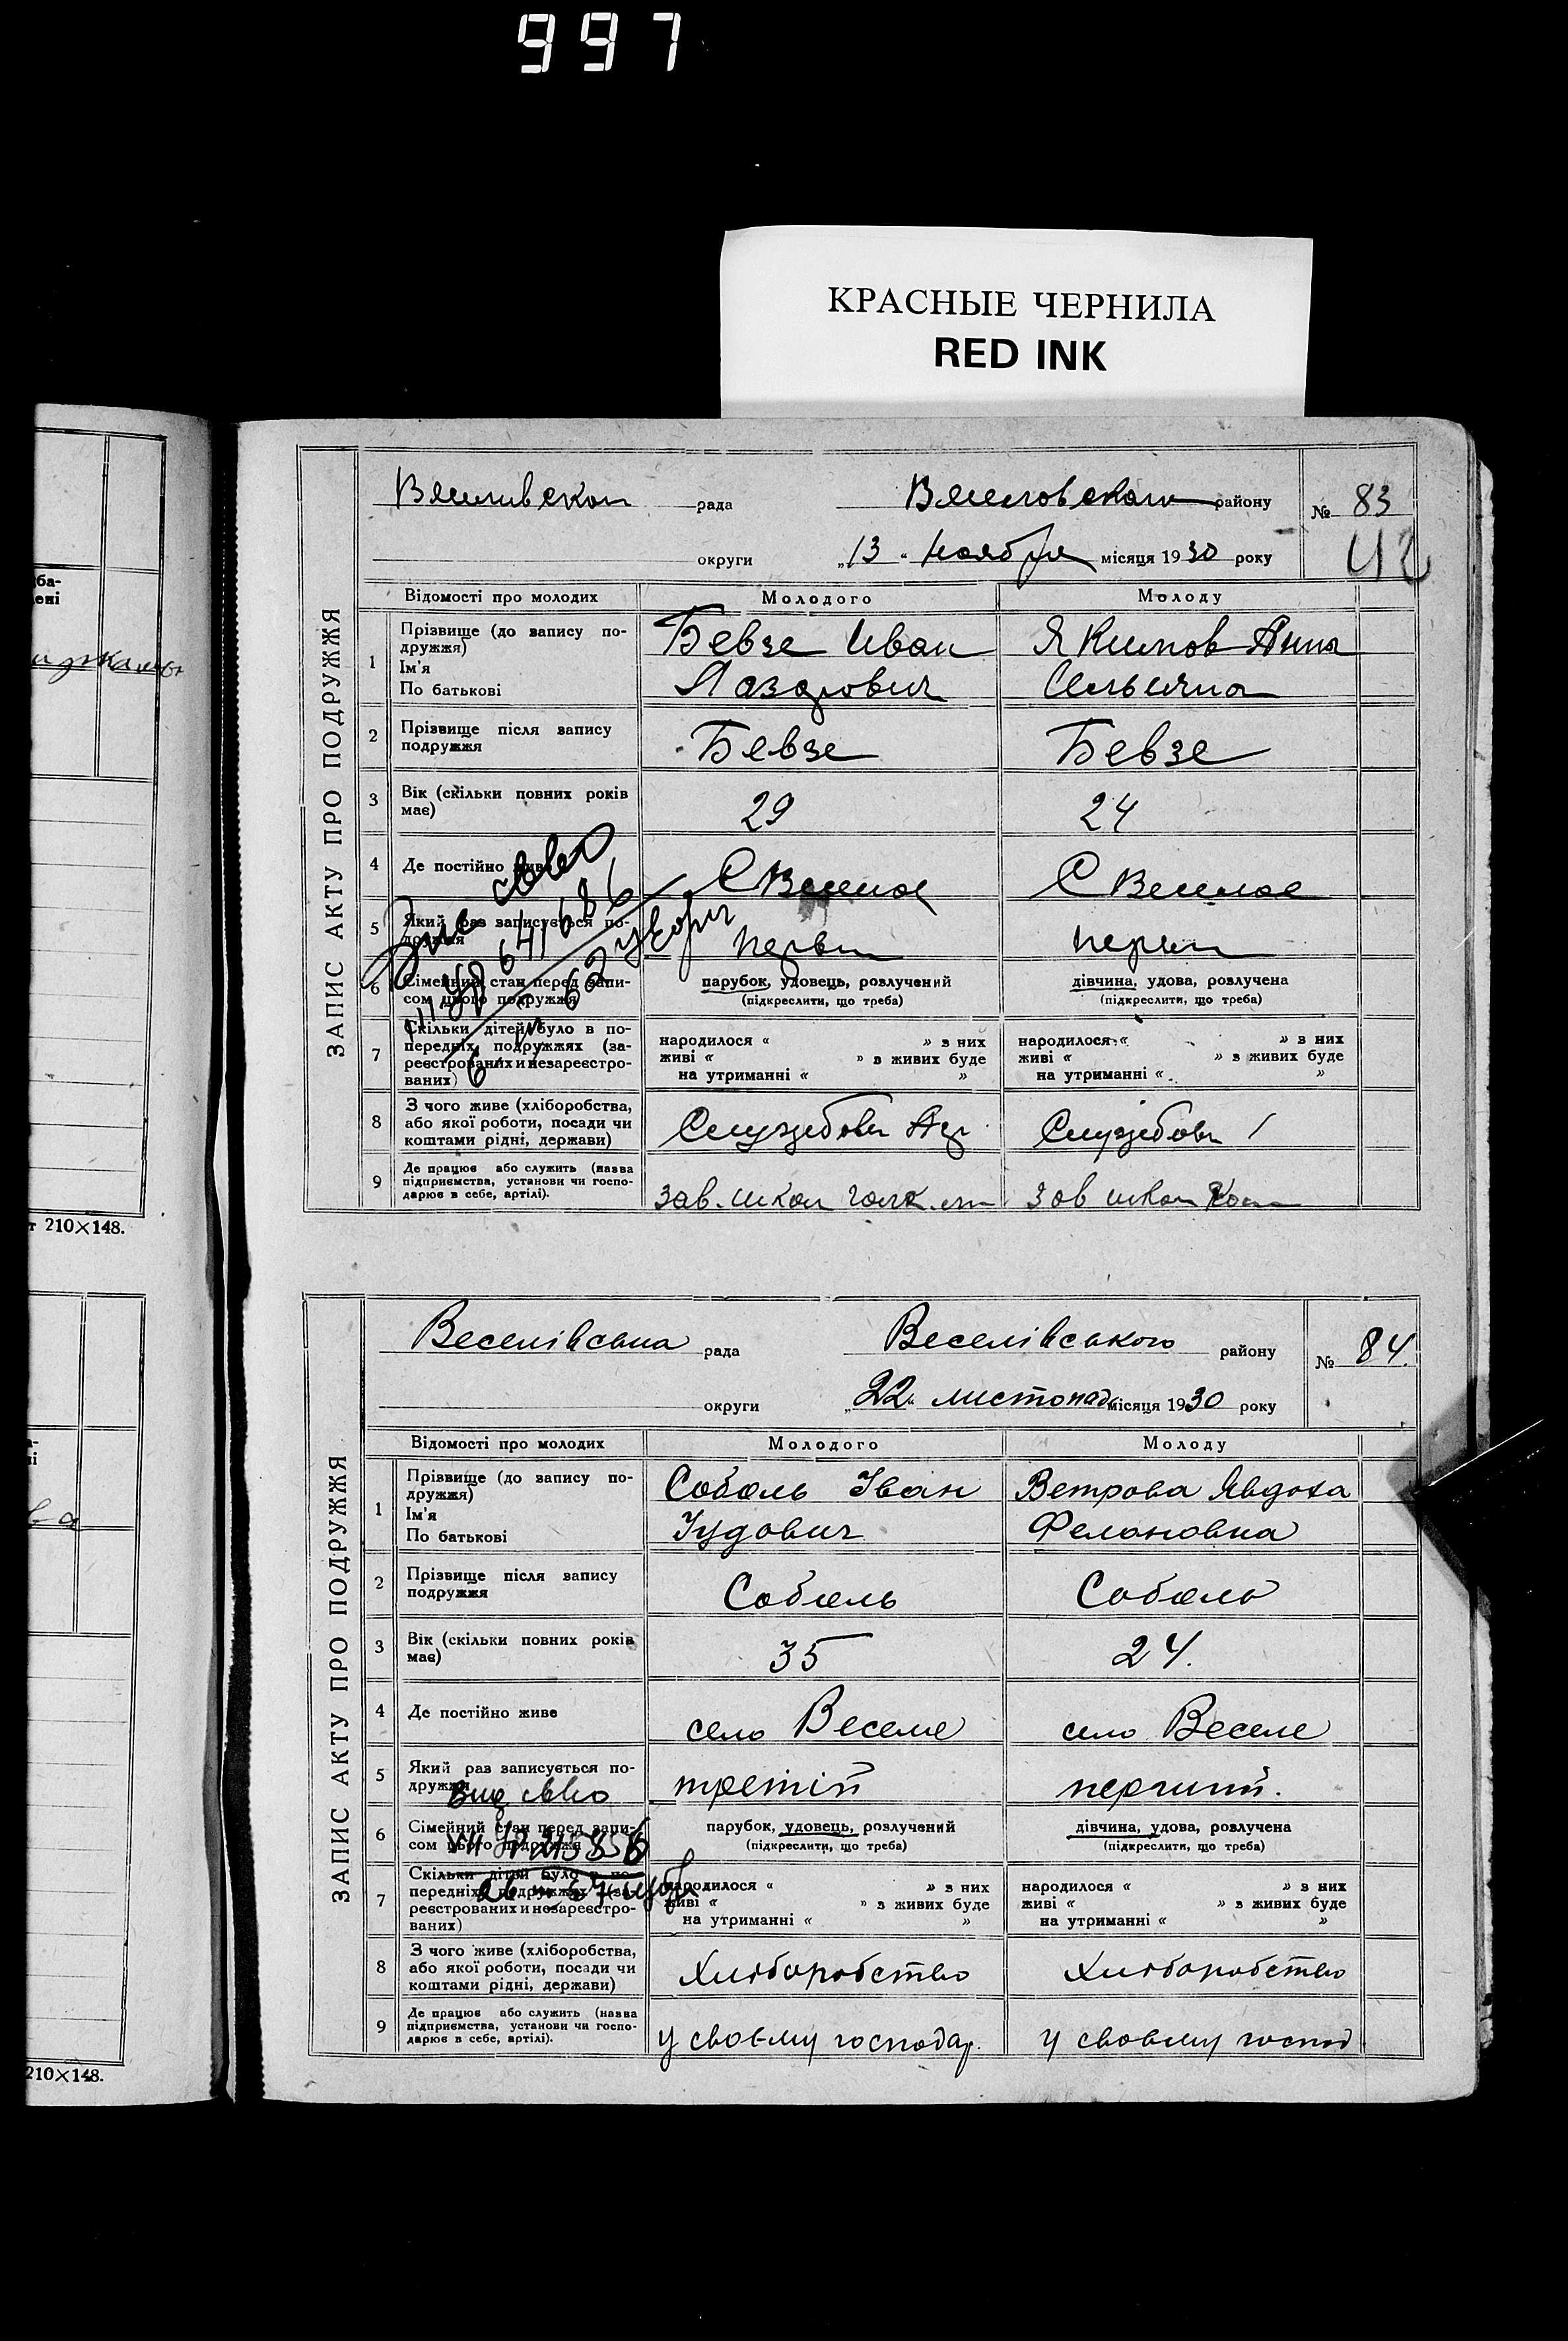 997
КРАСНЫЕ ЧЕРНИЛА
RED INK
ба-
ені
т 210×148.
ва
210×148.
ЗАПИС АКТУ ПРО ПОДРУЖЖЯ
рада районУ № 83
округи „13“ Ноября місяця 1930 року 42
Відомості про молодих Молодого Молоду
1 Прізвище (до запису подружжя) Бевзе Иван Якимов Анна
Ім'я
По батькові Лазарович
2 Прізвище після запису подружжя Бевзе Бевзе
3 Вік (скільки повних років має) 29 24
4 Де постійно живе С Веселое С Веселое
5 Який раз записується подружжя
6 Сімейний стан перед записом цього подружжя парубок, удовець, розлучений дівчина, удова, розлучена
(підкреслити, що треба) (підкреслити, що треба)
7 Скільки дітей було в попередніх подружжях (зареєстрованих и незареєстрованих) народилося « » з них народилося « » з них
живі « » з живих буде живі « » з живих буде
на утриманні « » на утриманні « »
8 З чого живе (хліборобства, або якої роботи, посади чи коштами рідні, держави)
9 Де працює або служить (назва підприємства, установи чи господарює в себе, артілі). зав. школ зав школ
ЗАПИС АКТУ ПРО ПОДРУЖЖЯ
Веселівська рада Веселівського району № 84.
округи „22“ листопад місяця 1930 року
Відомості про молодих Молодого Молоду
1 Прізвище (до запису подружжя) Соболь Іван Ветрова Явдоха
Ім'я
По батькові Іудович
2 Прізвище після запису подружжя Соболь Соболь
3 Вік (скільки повних років має) 35 24.
4 Де постійно живе село Веселе село Веселе
5 Який раз записується подружжя третій перший.
6 Сімейний стан перед записом цього подружжя парубок, удовець, розлучений дівчина, удова, розлучена
(підкреслити, що треба) (підкреслити, що треба)
7 Скільки дітей було в попередніх подружжях (зареєстрованих и незареєстрованих) народилося « » з них народилося « » з них
живі « » з живих буде живі « » з живих буде
на утриманні « » на утриманні « »
8 З чого живе (хліборобства, або якої роботи, посади чи коштами рідні, держави) Хліборобство Хліборобство
9 Де працює або служить (назва підприємства, установи чи господарює в себе, артілі). у своєму господар. у своєму господ